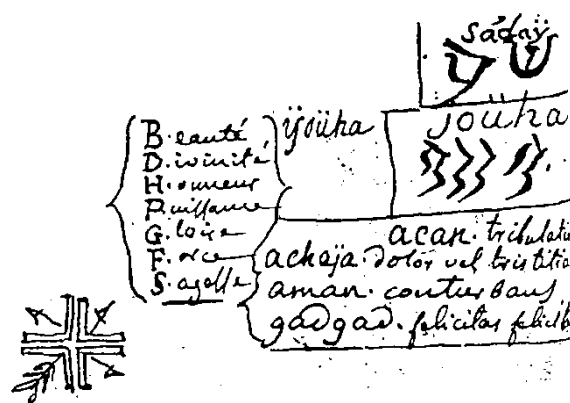 sadaÿ
B.eauté
D.ivinité
H.onneur
P.uissance
G.loire
F.orce
S.agesse
ÿoüha
joüha
acan. tribulatio
acheja. dolor vel tristitia
aman. conturbans
gadgad. felicitas